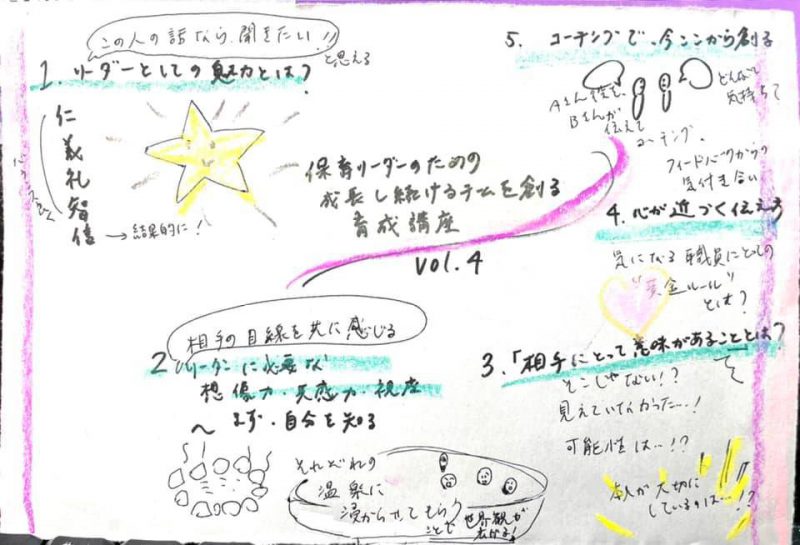 この人の話なら、聞きたい!!
と思える
1. リーダーとしての魅力とは?
仁
義
礼
智
信
→結果的に!
保育リーダーのための
成長し続けるチームを創る
育成講座
vol.4
相手の目線を共に感じる
2 リーダーに必要な
想像力・共感力・視座
〜まず・自分を知る
それぞれの
温泉に
浸からせてもらう
ことで
世界観が
広がる!
3. 「相手にとって意味があることとは?
そこじゃない!?
見えていなかった…!
可能性は…!?
本人が大切に
しているのは…!?
4. 心が近づく伝え方
気になる職員にとっての
"黄金ルール"
とは?
5. コーチングで、今ここから創る
Aさん役を、
Bさんが
伝えて
どんな
気持ち?
コーチング、
フィードバックからの
気付き合い